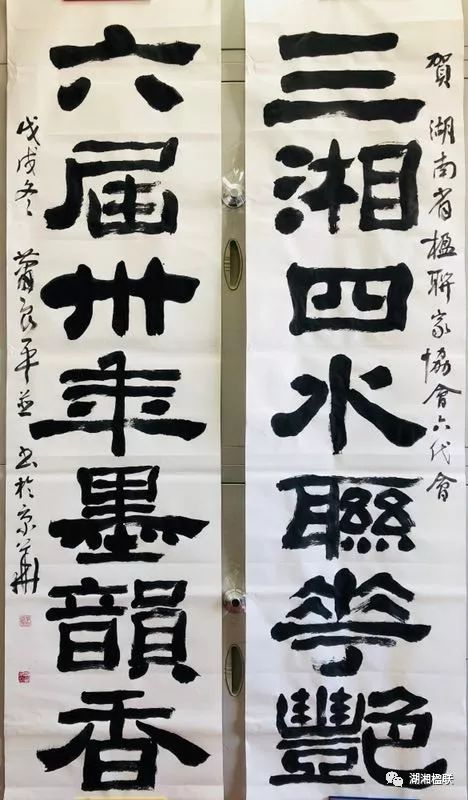 賀 湖南省楹聯家協會六代會
三湘四水聯花艷
六届卅年墨韻香
戊戌冬 蕭良平並书於京華
湖湘楹联